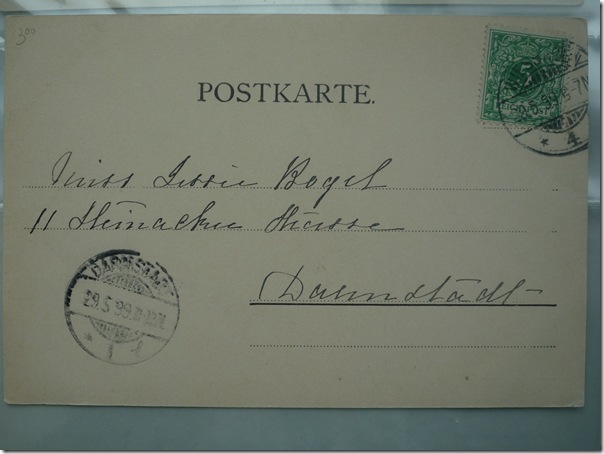 300
5
POSTKARTE.
Miss Jessie Bogel
11 Steinacker Strasse
Darmstadt
DARMSTADT
29.5.99
* 4
* 1